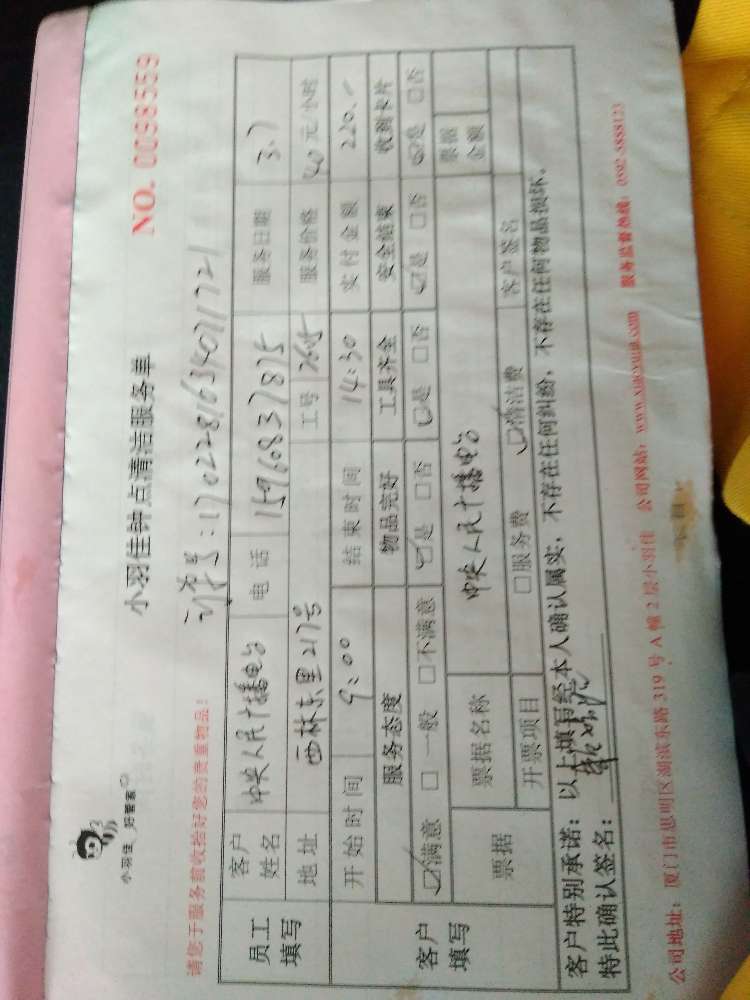 小羽佳 好管家
小羽佳钟点清洁服务单
NO. 0098559
请您于服务前收拾好您的贵重物品!
订单号:1702281634071721
员工填写
客户姓名 中央人民广播电台 电话 15960837875 服务日期 3.7
地址 西林东里217号 工号 2605 服务价格 40元/小时
开始时间 9:00 结束时间 14:30 实付金额 220.-
客户填写
服务态度 物品完好 工具齐全 安全结束 收到卡片
☑满意 □一般 □不满意 ☑是 □否 ☑是 □否 ☑是 □否 ☑是 □否
票据 票据名称 中央人民广播电台 票据金额
开票项目 □服务费 ☑清洁费 客户签名
客户特别承诺:以上填写经本人确认属实,不存在任何纠纷,不存在任何物品损坏。
特此确认签名:
公司地址:厦门市思明区湖滨东路319号A幢2层小羽佳 公司网站:www.xiaoyujia.com 服务监督热线:0592-5888123